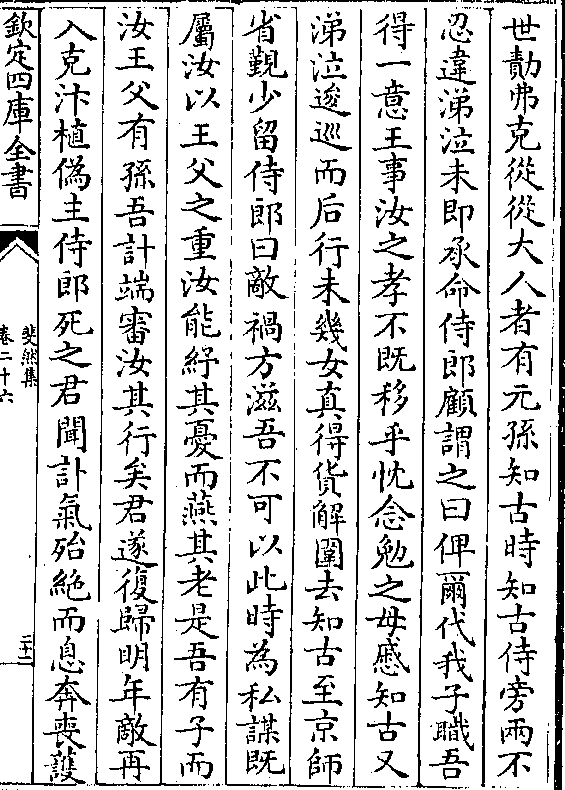 世勣弗克從從大人者有元孫知古時知古侍旁兩不
忍違涕泣未即承命侍郎顧謂之曰俾爾代我子職吾
得一意王事汝之孝不既移乎忱念勉之毋慼知古又
涕泣逡巡而后行未幾女真得貨解圍去知古至京師
省覲少留侍郎曰敵禍方滋吾不可以此時為私謀既
屬汝以王父之重汝能紓其憂而燕其老是吾有子而
汝王父有孫吾計端審汝其行矣君遂復歸明年敵再
入克汴植偽主侍郎死之君聞訃氣殆絶而息奔喪護
欽定四庫全書
斐然集
卷二十六
二十二